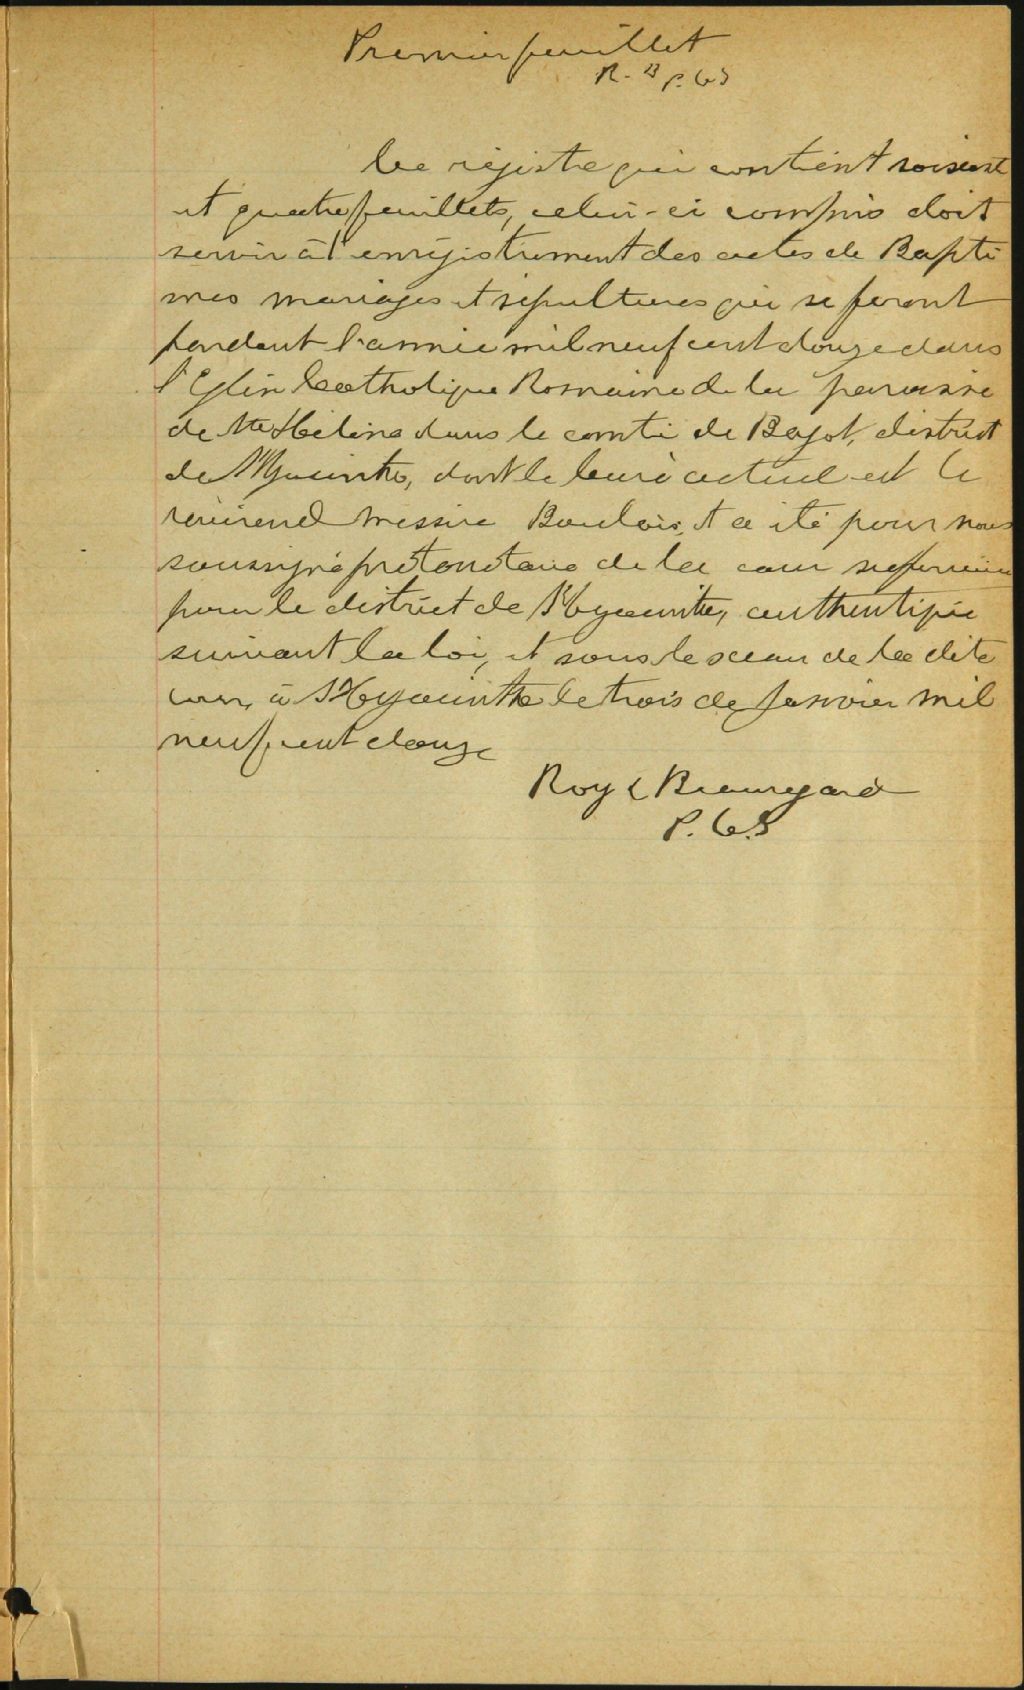 Premier feuillet
R. B P.C.S
Ce régistre qui contient soixante
et quatre feuillets, celui-ci compris doit
servir à l'enrégistrement des actes de Bapte
mes mariages et sépultures qui se feront
pendant l'année mil neuf cent douze dans
l'Eglise Catholique Romaine de la paroisse
de Ste Hélène dans le comté de Bagot, district
de St Hyacinthe, dont le Curé actuel est le
révérend messire et a été pour nous
soussigné protonotaire de la cour supérieure
pour le district de St Hyacinthe, authentiqué
suivant la loi, et sous le sceau de la dite
cour, à St Hyacinthe le trois de Janvier mil
neuf cent douze
Roy & Beauregard
P.C.S